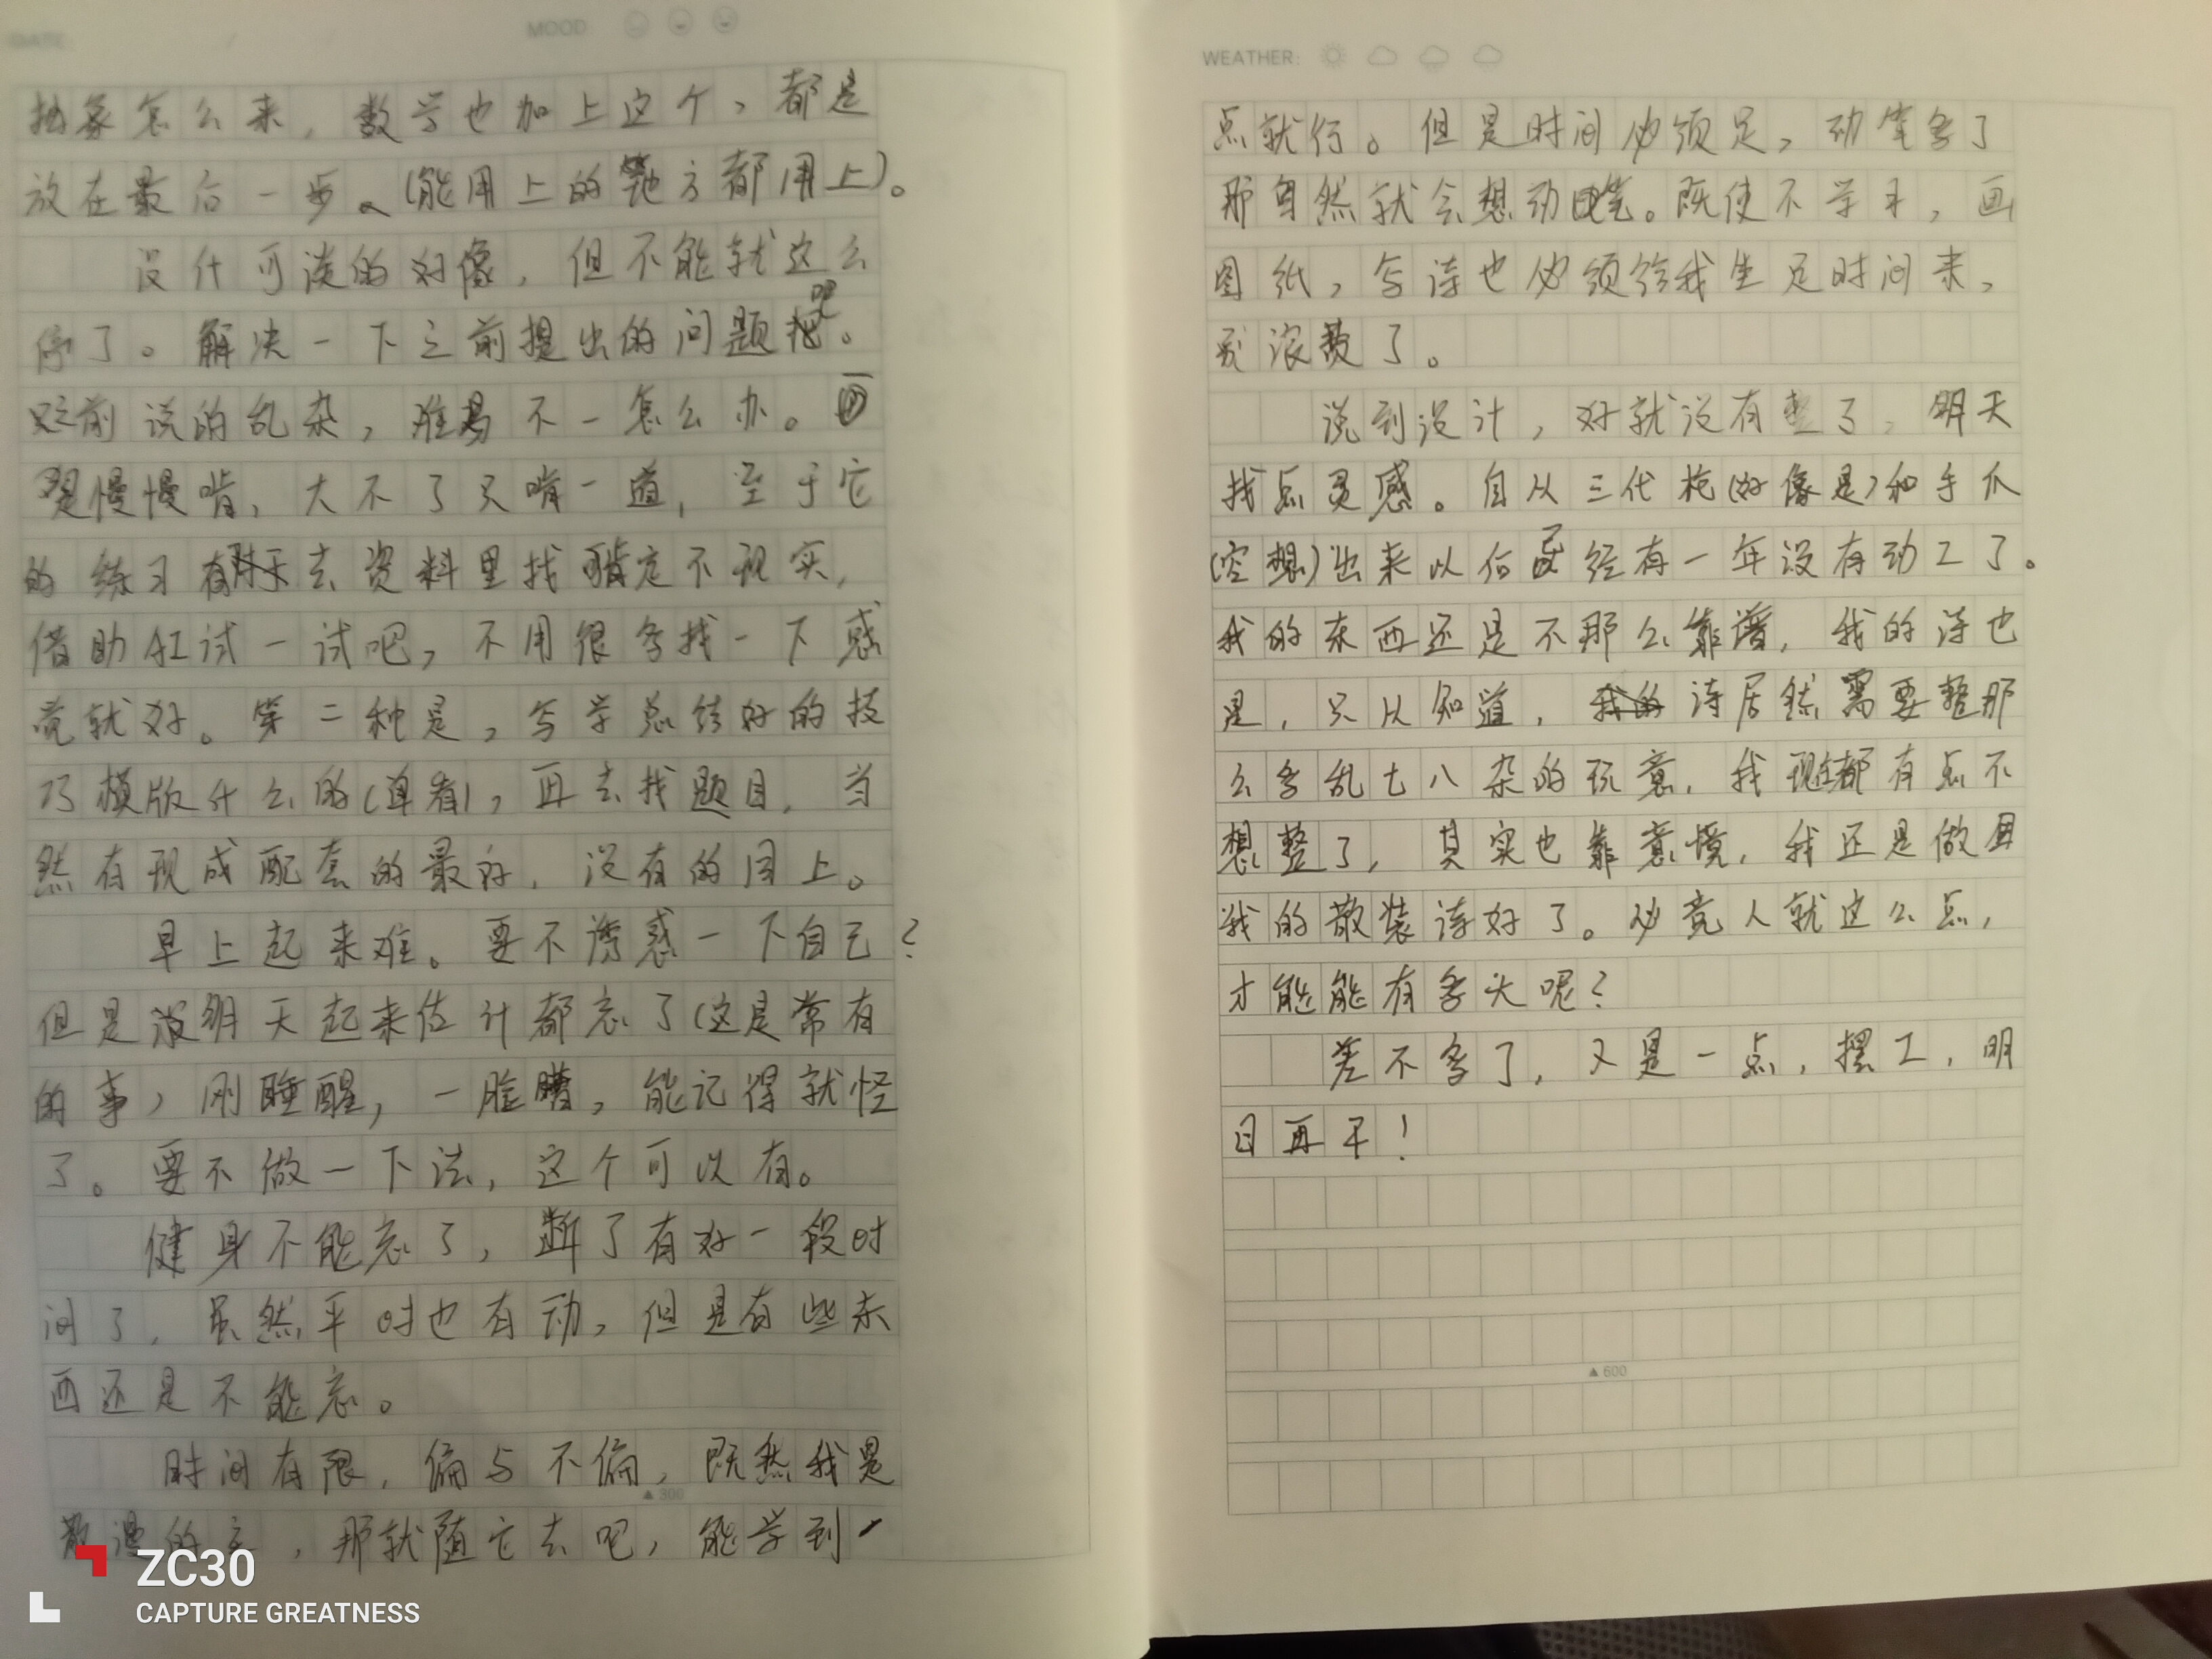 DATE:
MOOD
抽象怎么来，数学也加上这个，都是
放在最后一步。（能用上的地方都用上）。
没什可谈的好像，但不能就这么
停了。解决一下之前提出的问题吧。
之前说的乱杂，难易不一怎么办。
慢慢啃，大不了只啃一道，至于它
的练习有时天去资料里找肯定不现实，
借助AI试一试吧，不用很多找一下感
觉就好。第二种是，写学总结好的技
巧模版什么的（单看），再去找题目，当
然有现成配套的最好，没有的同上。
早上起来难。要不诱惑一下自己？
但是明天起来估计都忘了（这是常有
的事，刚睡醒，一脸懵，能记得就怪
了。要不做一下法，这个可以有。
健身不能忘了，断了有好一段时
间了，虽然平时也有动，但是有些东
西还是不能忘。
时间有限，偏与不偏，既然我是
▲300
散漫的主，那就随它去吧，能学到一
ZC30
CAPTURE GREATNESS
WEATHER:
点就行。但是时间必须足，动笔多了
那自然就会想动笔。既使不学习，画
图纸，写诗也必须给我坐足时间来，
别浪费了。
说到设计，好就没有整了，明天
找点灵感。自从三代枪（好像是）和手爪
（空想）出来以后已经有一年没有动工了。
我的东西还是不那么靠谱，我的诗也
是，只从知道，诗居然需要整那
么多乱七八杂的玩意，我现在都有点不
想整了，其实也靠意境，我还是做回
我的散装诗好了。必竟人就这么点，
才能能有多大呢？
差不多了，又是一点，摆工，明
日再干！
▲600